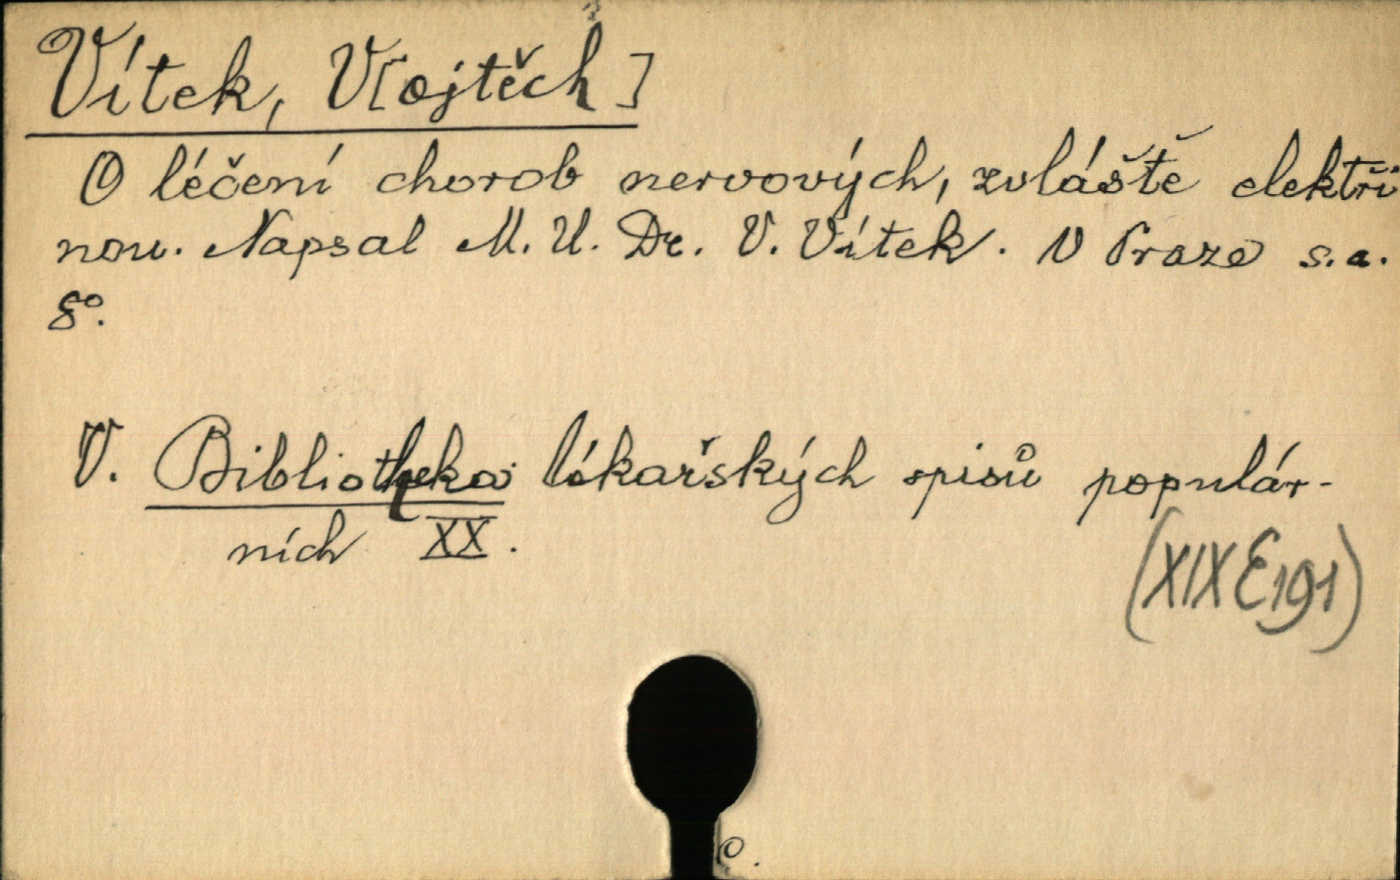 Vítek, V[ojtěch]
O léčení chorob nervových, zvláště elektři
nou. Napsal M. U. Dr. V. Vítek. V Praze s. a.
8°.
V. Bibliotheka lékařských spisů populár-
ních XX.
(XIX E 191)
C.